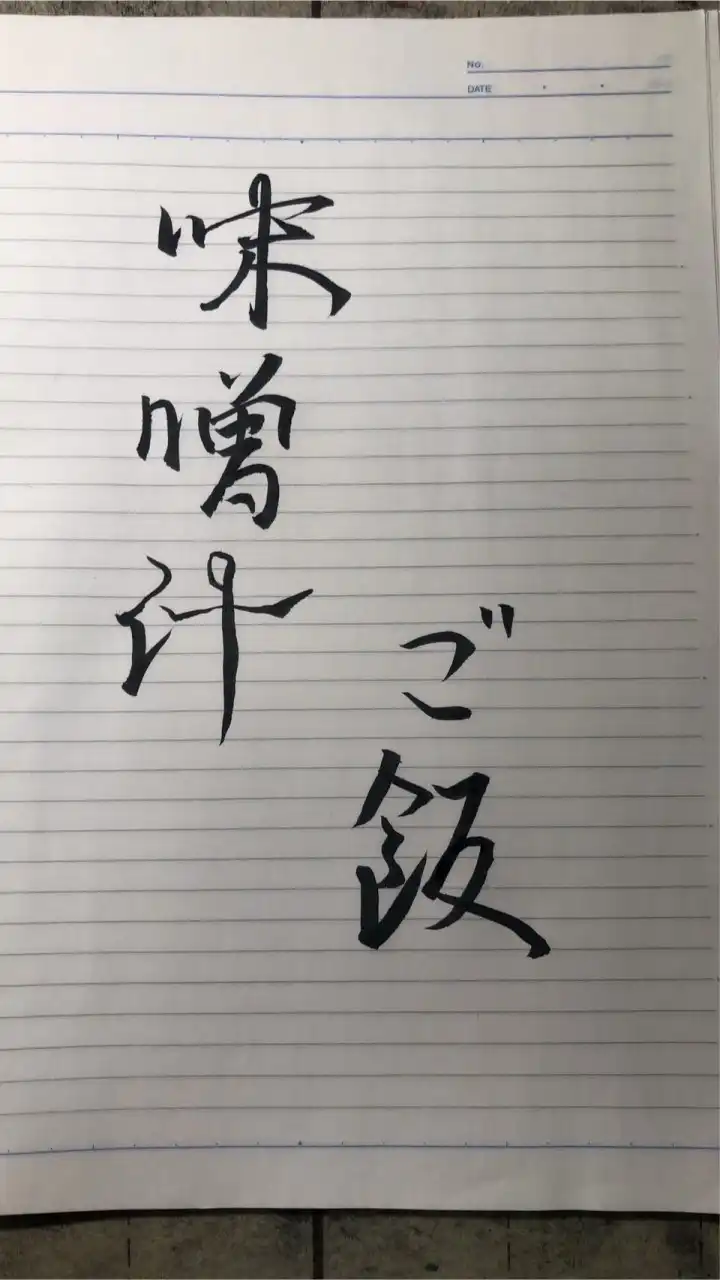 No.
DATE
ご飯
味噌汁